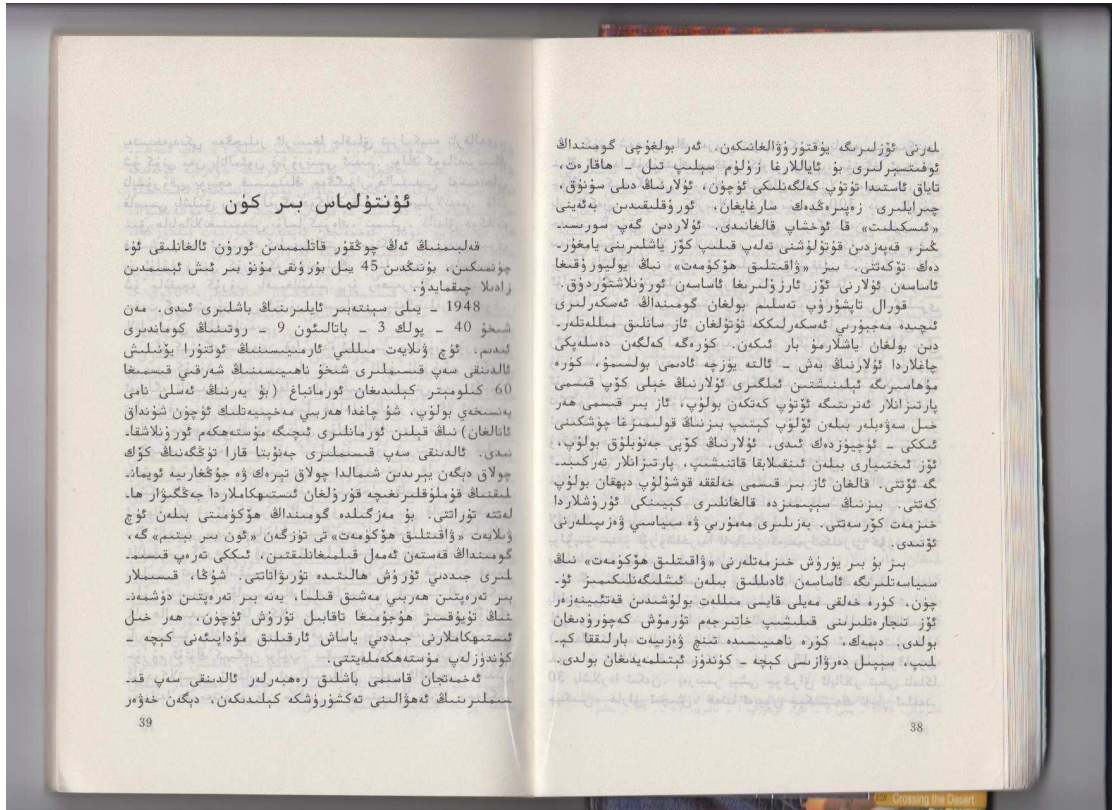 لەرنى ئۆزلىرىگە يۇقتۇرۇۋالغانىكەن. ئەر بولغۇچى گومىنداڭ
ئوفىتسېرلىرى بۇ ئاياللارغا زۇلۇم سېلىپ تىل ـ ھاقارەت،
تاياق ئاستىدا تۇتۇپ كەلگەنلىكى ئۈچۈن، ئۇلارنىڭ دىلى سۇنۇق،
چىرايلىرى زەپىرەڭدەك سارغايغان، ئورۇقلىقىدىن بەئەينى
«ئىسكىلىت» قا ئوخشاپ قالغانىدى. ئۇلاردىن گەپ سورىسىـ
ڭىز، قەپەزدىن قۇتۇلۇشنى تەلەپ قىلىپ كۆز ياشلىرىنى يامغۇرـ
دەك تۆكەتتى. بىز «ۋاقىتلىق ھۆكۈمەت» نىڭ يوليورۇقىغا
ئاساسەن ئۇلارنى ئۆز ئارزۇلىرىغا ئاساسەن ئورۇنلاشتۇردۇق.
قورال تاپشۇرۇپ تەسلىم بولغان گومىنداڭ ئەسكەرلىرى
ئىچىدە مەجبۇرىي ئەسكەرلىككە تۇتۇلغان ئاز سانلىق مىللەتلەرـ
دىن بولغان ياشلارمۇ بار ئىكەن. كۈرەگە كەلگەن دەسلەپكى
چاغلاردا ئۇلارنىڭ بەش ـ ئالتە يۈزچە ئادىمى بولسىمۇ، كۈرە
مۇھاسىرىگە ئېلىنىشتىن ئىلگىرى ئۇلارنىڭ خېلى كۆپ قىسمى
پارتىزانلار ئەترىتىگە ئۆتۈپ كەتكەن بولۇپ، ئاز بىر قىسمى ھەر
خىل سەۋەبلەر بىلەن ئۆلۈپ كېتىپ بىزنىڭ قولىمىزغا چۈشكىنى
ئىككى ـ ئۈچيۈزدەك ئىدى. ئۇلارنىڭ كۆپى جەنۇبلۇق بولۇپ،
ئۆز ئىختىيارى بىلەن ئىنقىلابقا قاتنىشىپ، پارتىزانلار تەركىبىـ
گە ئۆتتى. قالغان ئاز بىر قىسمى خەلققە قوشۇلۇپ دېھقان بولۇپ
كەتتى. بىزنىڭ سېپىمىزدە قالغانلىرى كېيىنكى ئۇرۇشلاردا
خىزمەت كۆرسەتتى. بەزىلىرى مەمۇرىي ۋە سىياسىي ۋەزىپىلەرنى
ئۆتىدى.
بىز بۇ بىر يۈرۈش خىزمەتلەرنى «ۋاقىتلىق ھۆكۈمەت» نىڭ
سىياسەتلىرىگە ئاساسەن ئادىللىق بىلەن ئىشلىگەنلىكىمىز ئۈـ
چۈن. كۈرە خەلقى مەيلى قايسى مىللەت بولۇشىدىن قەتئىينەزەر
ئۆز تىجارەتلىرىنى قىلىشىپ خاتىرجەم تۇرمۇش كەچۈرۈدىغان
بولدى. دېمەك. كۈرە ناھىيىسىدە تىنچ ۋەزىيەت بارلىققا كېـ
لىپ، سېپىل دەرۋازىسى كېچە ـ كۈندۈز ئېتىلمەيدىغان بولدى.
38
ئۇنتۇلماس بىر كۈن
قەلبىمنىڭ ئەڭ چوڭقۇر قاتلىمىدىن ئورۇن ئالغانلىقى ئۈـ
چۈنمىكىن، بۇنىڭدىن 45 يىل بۇرۇنقى مۇنۇ بىر ئىش ئېسىمدىن
زادىلا چىقمايدۇ.
1948 ـ يىلى سېنتەبىر ئايلىرىنىڭ باشلىرى ئىدى. مەن
شىخۇ 40 ـ پولك 3 ـ باتالىئون 9 ـ روتىنىڭ كوماندىرى
ئىدىم. ئۈچ ۋىلايەت مىللىي ئارمىيىسىنىڭ ئوتتۇرا يۆنىلىش
ئالدىنقى سەپ قىسىملىرى شىخۇ ناھىيىسىنىڭ شەرقىي قىسمىغا
60 كىلومېتر كېلىدىغان ئورماتباغ (بۇ يەرنىڭ ئەسلى نامى
بولۇپ، شۇ چاغدا ھەربىي مەخپىيەتلىك ئۈچۈن شۇنداق
ئاتالغان) نىڭ قېلىن ئورمانلىرى ئىچىگە مۇستەھكەم ئورۇنلاشقاـ
نىدى. ئالدىنقى سەپ قىسىملىرى جەنۇبتا قارا تۈڭگەنىڭ كۆك
چولاق دېگەن يېرىدىن شىمالدا چولاق تېرەك ۋە جۇڭغارىيە ئويمانـ
لىقىنىڭ قۇملۇقلىرىغىچە قۇرۇلغان ئىستىھكاملاردا جەڭگىۋار ھاـ
لەتتە تۇراتتى. بۇ مەزگىلدە گومىنداڭ ھۆكۈمىتى بىلەن ئۈچ
ۋىلايەت «ۋاقىتلىق ھۆكۈمەت» تى تۈزگەن «ئون بىر بېتىم» گە،
گومىنداڭ قەستەن ئەمەل قىلمىغانلىقتىن، ئىككى تەرەپ قىسىمـ
لىرى جىددىي ئۇرۇش ھالىتىدە تۇرىۋاتاتتى. شۇڭا، قىسىملار
بىر تەرەپتىن ھەربىي مەشىق قىلسا، يەنە بىر تەرەپتىن دۈشمەنـ
نىڭ تۇيۇقسىز ھۇجۇمىغا تاقابىل تۇرۇش ئۈچۈن، ھەر خىل
ئىستىھكاملارنى جىددىي ياساش ئارقىلىق مۇداپىئەنى كېچە ـ
كۈندۈزلەپ مۇستەھكەملەيتتى.
ئەخمەتجان قاسىمى باشلىق رەھبەرلەر ئالدىنقى سەپ قىـ
سىملىرىنىڭ ئەھۋالىنى تەكشۈرۈشكە كېلىدىكەن، دېگەن خەۋەر
39
Crossing the Desert